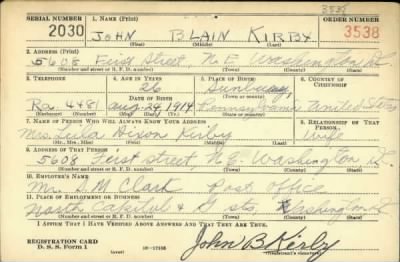 SERIAL NUMBER 1. NAME (Print) ORDER NUMBER
2030 JOHN BLAIN KIRBY 3538
(First) (Middle) (Last)
2. ADDRESS (Print)
5608 First Street, N.E. Washington D.C.
(Number and street or R. F. D. number) (Town) (County) (State)
3. TELEPHONE 4. AGE IN YEARS 5. PLACE OF BIRTH 6. COUNTRY OF CITIZENSHIP
26 Sunbury,
DATE OF BIRTH (Town or county)
Ra. 4481 Aug. 29, 1914 Pennsylvania United States
(Exchange) (Number) (Mo.) (Day) (Yr.) (State or country)
7. NAME OF PERSON WHO WILL ALWAYS KNOW YOUR ADDRESS 8. RELATIONSHIP OF THAT PERSON
Mrs. Lula Dixon Kirby Wife
(Mr., Mrs., Miss) (First) (Middle) (Last)
9. ADDRESS OF THAT PERSON
5608 First Street, N.E. Washington D.C.
(Number and street or R. F. D. number) (Town) (County) (State)
10. EMPLOYER'S NAME
Mr. S.M Clark Post Office
11. PLACE OF EMPLOYMENT OR BUSINESS
North Capitol & G sts, Washington D.C.
(Number and street or R. F. D. number) (Town) (County) (State)
I AFFIRM THAT I HAVE VERIFIED ABOVE ANSWERS AND THAT THEY ARE TRUE.
REGISTRATION CARD
D. S. S. Form 1 John B Kirby
(Registrant's signature)